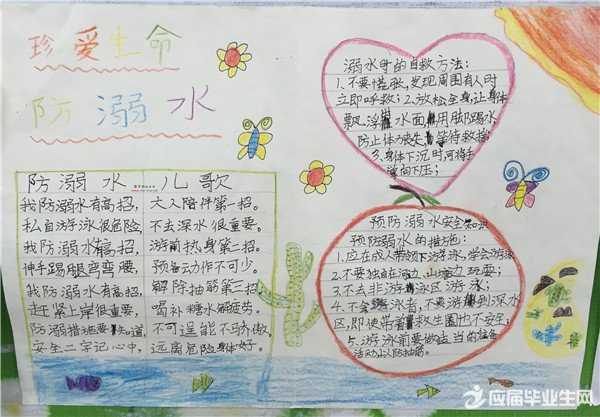 珍爱生命
防溺水
防溺水儿歌
我防溺水有高招,
私自游泳很危险,
我防溺水有高招,
伸手踢腿弯弯腰,
我防溺水有高招,
赶紧上岸很重要,
防溺措施要知道,
安全二字记心中,
大人陪伴第一招。
不去深水很重要。
游前热身第一招。
预备动作不可少。
解除抽筋第二招。
喝补糖水解疲劳。
不可逞能不骄傲,
远离危险身体好。
溺水时的自救方法:
1.不要慌张,发现周围有人时
立即呼救;2.放松全身,让身体
飘浮水面,用脚踢水
防止体力丧失,等待救援
3.身体下沉时,可将手
掌向下压;
预防溺水安全知识
预防溺水的措施:
1.应在成人带领下游泳,学会游泳
2.不要独自在河边、山塘边玩耍;
3.不去非游泳区游泳;
4.不会游泳者,不要游到深水
区,即使带着救生圈也不安全;
5.游泳前要做适当的准备
活动,以防抽筋。
应届毕业生网